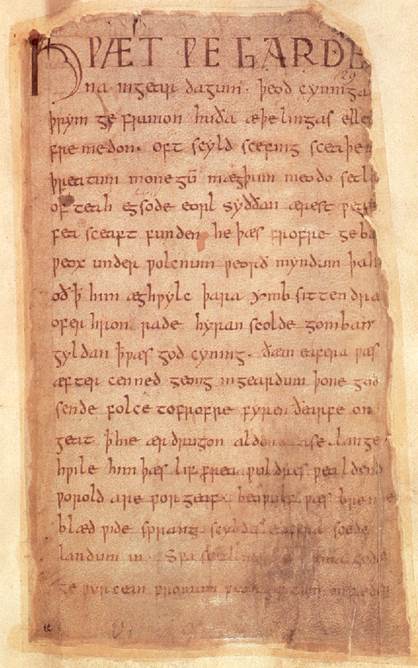 HǷÆT ǷE GARDE
na ingear dagum · þeod cyninga
þrym ge frunon huða æþelingas elle
fremedon · oft scyld scefing sceaþe
þreatum monegū mægþum meodo setla
of teah egsode eorl syððan ærest
fea sceaft funden he þæs frofre geba
ƿeox under ƿolcnum ƿeorð myndum þah
oð ꝥ him æghƿylc þara ymb sittendra
ofer hron rade hyran scolde gomban
gyldan ꝥ ƿæs god cyning · ðæm eafera ƿæs
æfter cenned geong ingeardum þone god
sende folce tofrofre fyren ðearfe on
geat ꝥ hie ær drugon aldor ase lange
hƿile him þæs lif frea ƿuldres ƿealdend
ƿorold are forgeaf beoƿulf ƿæs breme
blæd ƿide sprang scyldes eafera scede
landum in · Sƿa guma gode
ge ƿyrcean fromum